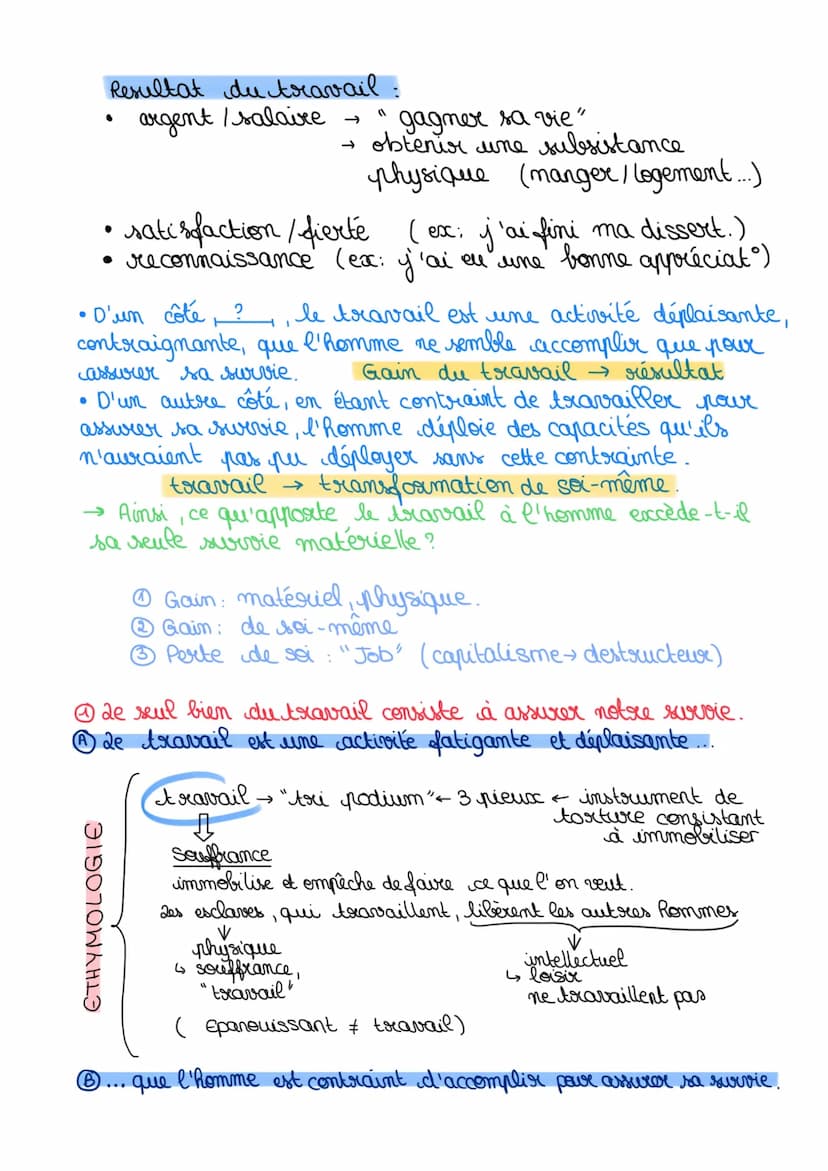 Resultat du travail :
• argent / salaire → " gagner sa vie"
→ obtenir une subsistance
physique (manger / logement ...)
• satisfaction / fierté ( ex: j'ai fini ma dissert.)
• reconnaissance (ex: j'ai eu une bonne appréciat°)
• D'un côté, ?, le travail est une activité déplaisante,
contraignante, que l'homme ne semble accomplir que pour
assurer sa survie. Gain du travail → résultat
• D'un autre côté, en étant contraint de travailler pour
assurer sa survie, l'homme déploie des capacités qu'ils
n'auraient pas pu déployer sans cette contrainte.
travail → transformation de soi-même.
→ Ainsi, ce qu'apporte le travail à l'homme excède-t-il
sa seule survie matérielle ?
① Gain : matériel, physique.
② Gain : de soi-même
③ Perte de soi : "Job" (capitalisme → destructeur)
① Le seul bien du travail consiste à assurer notre survie.
Ⓐ Le travail est une activité fatigante et déplaisante...
ETHYMOLOGIE
travail → "tri podium" ← 3 pieux ← instrument de
torture consistant
à immobiliser
⇓
souffrance
immobilise et empêche de faire ce que l'on veut.
Les esclaves, qui travaillent, libèrent les autres hommes
↓ physique
↳ souffrance,
"travail"
↓ intellectuel
↳ loisir
ne travaillent pas
( épanouissant ≠ travail)
Ⓑ ... que l'homme est contraint d'accomplir pour assurer sa survie.